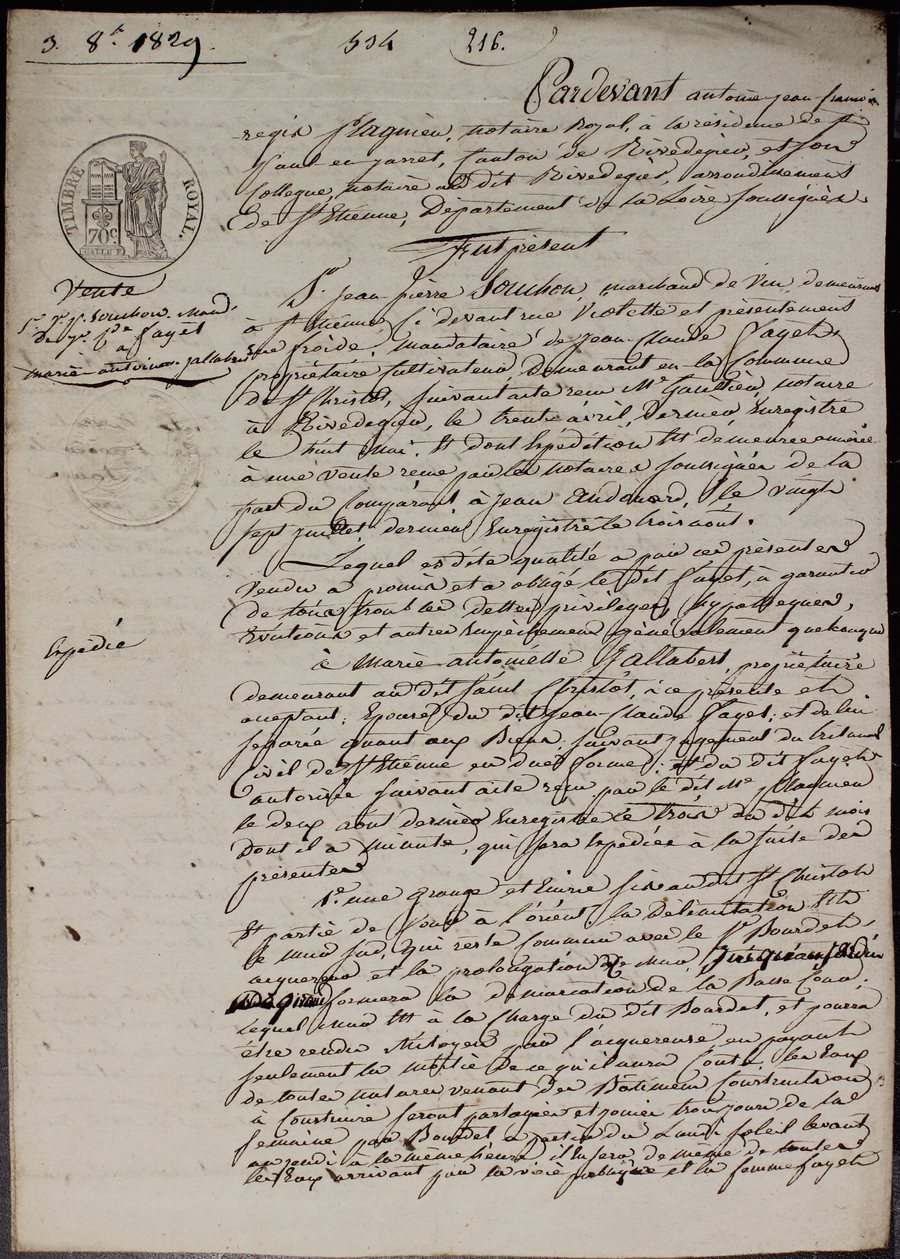 3. 8.bre 1829
534
216.
Pardevant antoine jean francois
regis flaquieu, notaire Royal, à la résidence de St.
Paul en jarret, Canton de Rivedegier, et son
Collegue, notaire au dit Rivedegier, arrondissement
de St. Etienne, Département de la Loire soussignés.
Fut présent
TIMBRE ROYAL.
70c
Vente
Sr. jn. pre. Souchon, Mand.
de jn. Cde fayet
à
marie antoinette jallabert
Sr. jean-pierre Souchon, marchand de Vin, demeurant
à St. Etienne, Ci devant rue Violette et présentement
rue froide, mandataire de jean-Claude fayet,
propriétaire Cultivateur, Demeurant en la Commune
de St. Christot, Suivant acte reçu Me. Gaultier, notaire
à Rivedegier, le trente avril dernier, Enregistré
le huit mai, Et dont Expédition Est demeurée annexée
à une vente reçue par les notaires soussignés de la
part du Comparant à jean audouard, le vingt
sept juillet dernier Enregistré le trois août.
Lequel es dite qualité a par ces présentes
Vendu a promis et a obligé le dit fayet, à garantir
de tous troubles dettes privileges, hypotheques,
Evictions et autres empêchemens généralement quelconques
Expédié
à Marie-antoinette Jallabert, propriétaire
demeurant au dit Saint Christôt, à ce présente et
acceptant; Epouse du dit jean-Claude fayet, et de lui
séparée quant aux Biens, suivant jugement du tribunal
Civil de St. Etienne en due forme; et du dit fayet
autorisée suivant acte reçu par le dit Me. flaquieu
le deux août dernier Enregistré le trois du dit mois
Dont il a minute, qui sera Expédiée à la suite des
présentes
1.o une grange et Ecurie sise au dit St. Christot
Et partie de Cour à l'orient la délimitation Est
le mur sud, qui reste Commun avec le Sr. Bourdet,
acquereur et la prolongation de mur, jusqu'au jardin
formera la démarcation de la Basse Cour;
lequel mur Est à la Charge du dit Bourdet, et pourra
être rendu Mitoyen par l'acquereuse, en payant
seulement la moitié de ce qu'il aura Couté, les Eaux
de toutes natures venant des Bâtimens Construits ou
à Construire seront partagées et jouies trois jours de la
semaine par Bourdet à partir du Lundi soleil levant
au jeudi à la même heure, il en sera de même de toutes
les Eaux arrivant par la voie publique et la femme fayet